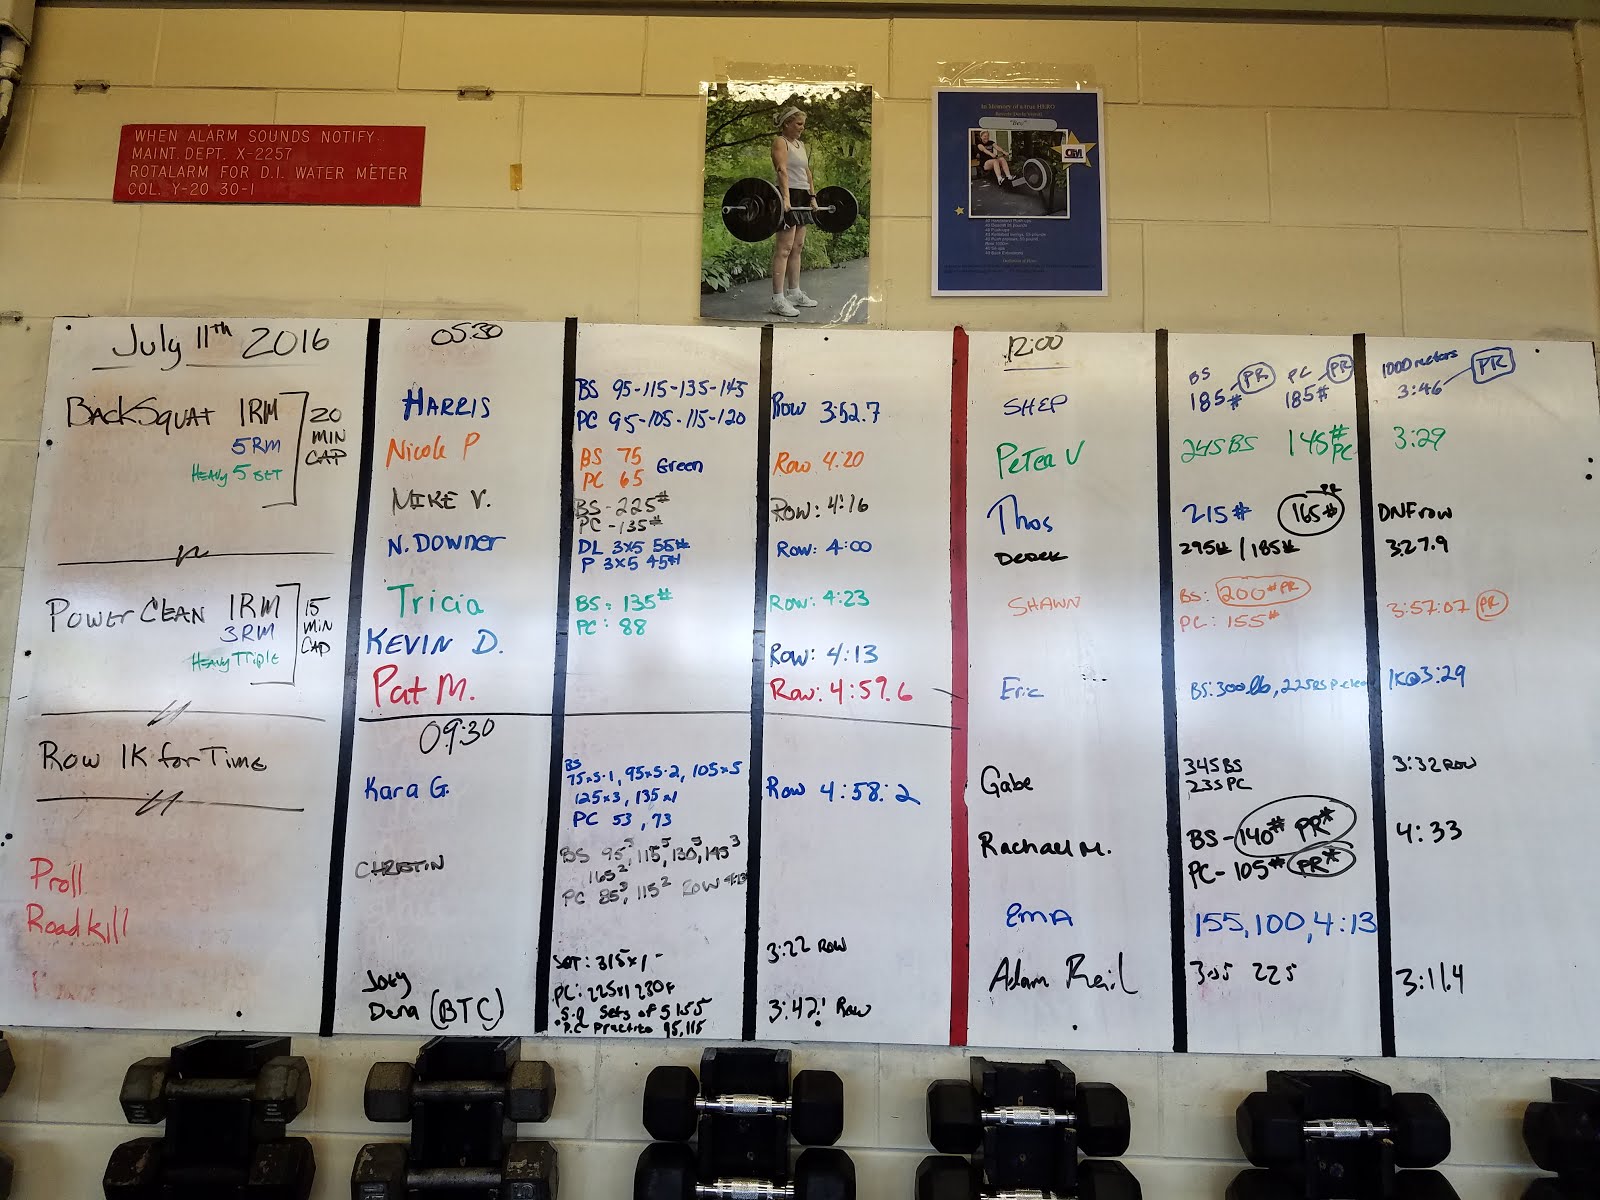 WHEN ALARM SOUNDS NOTIFY
MAINT. DEPT. X-2257
ROTALARM FOR D.I. WATER METER
COL. Y-20 30-1
In Memory of a true HERO
July 11th 2016
BACK SQUAT 1RM
5RM
HEAVY 5 SET
20
MIN
CAP
POWER CLEAN 1RM
3RM
HEAVY TRIPLE
15
MIN
CAP
Row 1K for Time
Proll
Roadkill
05:30
HARRIS
BS 95-115-135-145
PC 95-105-115-120
Row 3:52.7
Nicole P
BS 75
PC 65
Green
Row 4:20
MIKE V.
BS-225#
PC-135#
Row: 4:16
N. Downer
DL 3x5 55#
P 3x5 45#
Row: 4:00
Tricia
BS: 135#
PC: 88
Row: 4:23
KEVIN D.
Row: 4:13
Pat M.
Row: 4:59.6
09:30
Kara G.
BS
75x5-1, 95x5-2, 105x5
125x3, 135x1
PC 53, 73
Row 4:58:2
CHRISTIN
BS 95 5, 115 5, 130 3, 145 3
165 2
PC 85 3, 115 2 Row
Joey
315x1
PC: 225x1 230F
3:22 Row
Dana (BTC)
S.Q Sets of 5 155
P.C Practice 95,115
3:42! Row
12:00
SHEP
BS PR
185#
PC PR
185#
1000 meters
3:46 PR
Peter V
245 BS 145# PC
3:29
Thos
215# 165# PR
DNF row
Derek
295# / 185#
3:27.9
SHAWN
BS: 200# PR
PC: 155#
3:57:07 PR
Eric
BS: 300lb, 225lbs P. clean
1K@3:29
Gabe
345 BS
235 PC
3:32 ROW
Rachael M.
BS-140# PR*
PC-105# PR*
4:33
EMA
155, 100, 4:13
Adam Reil
305 225
3:11.4